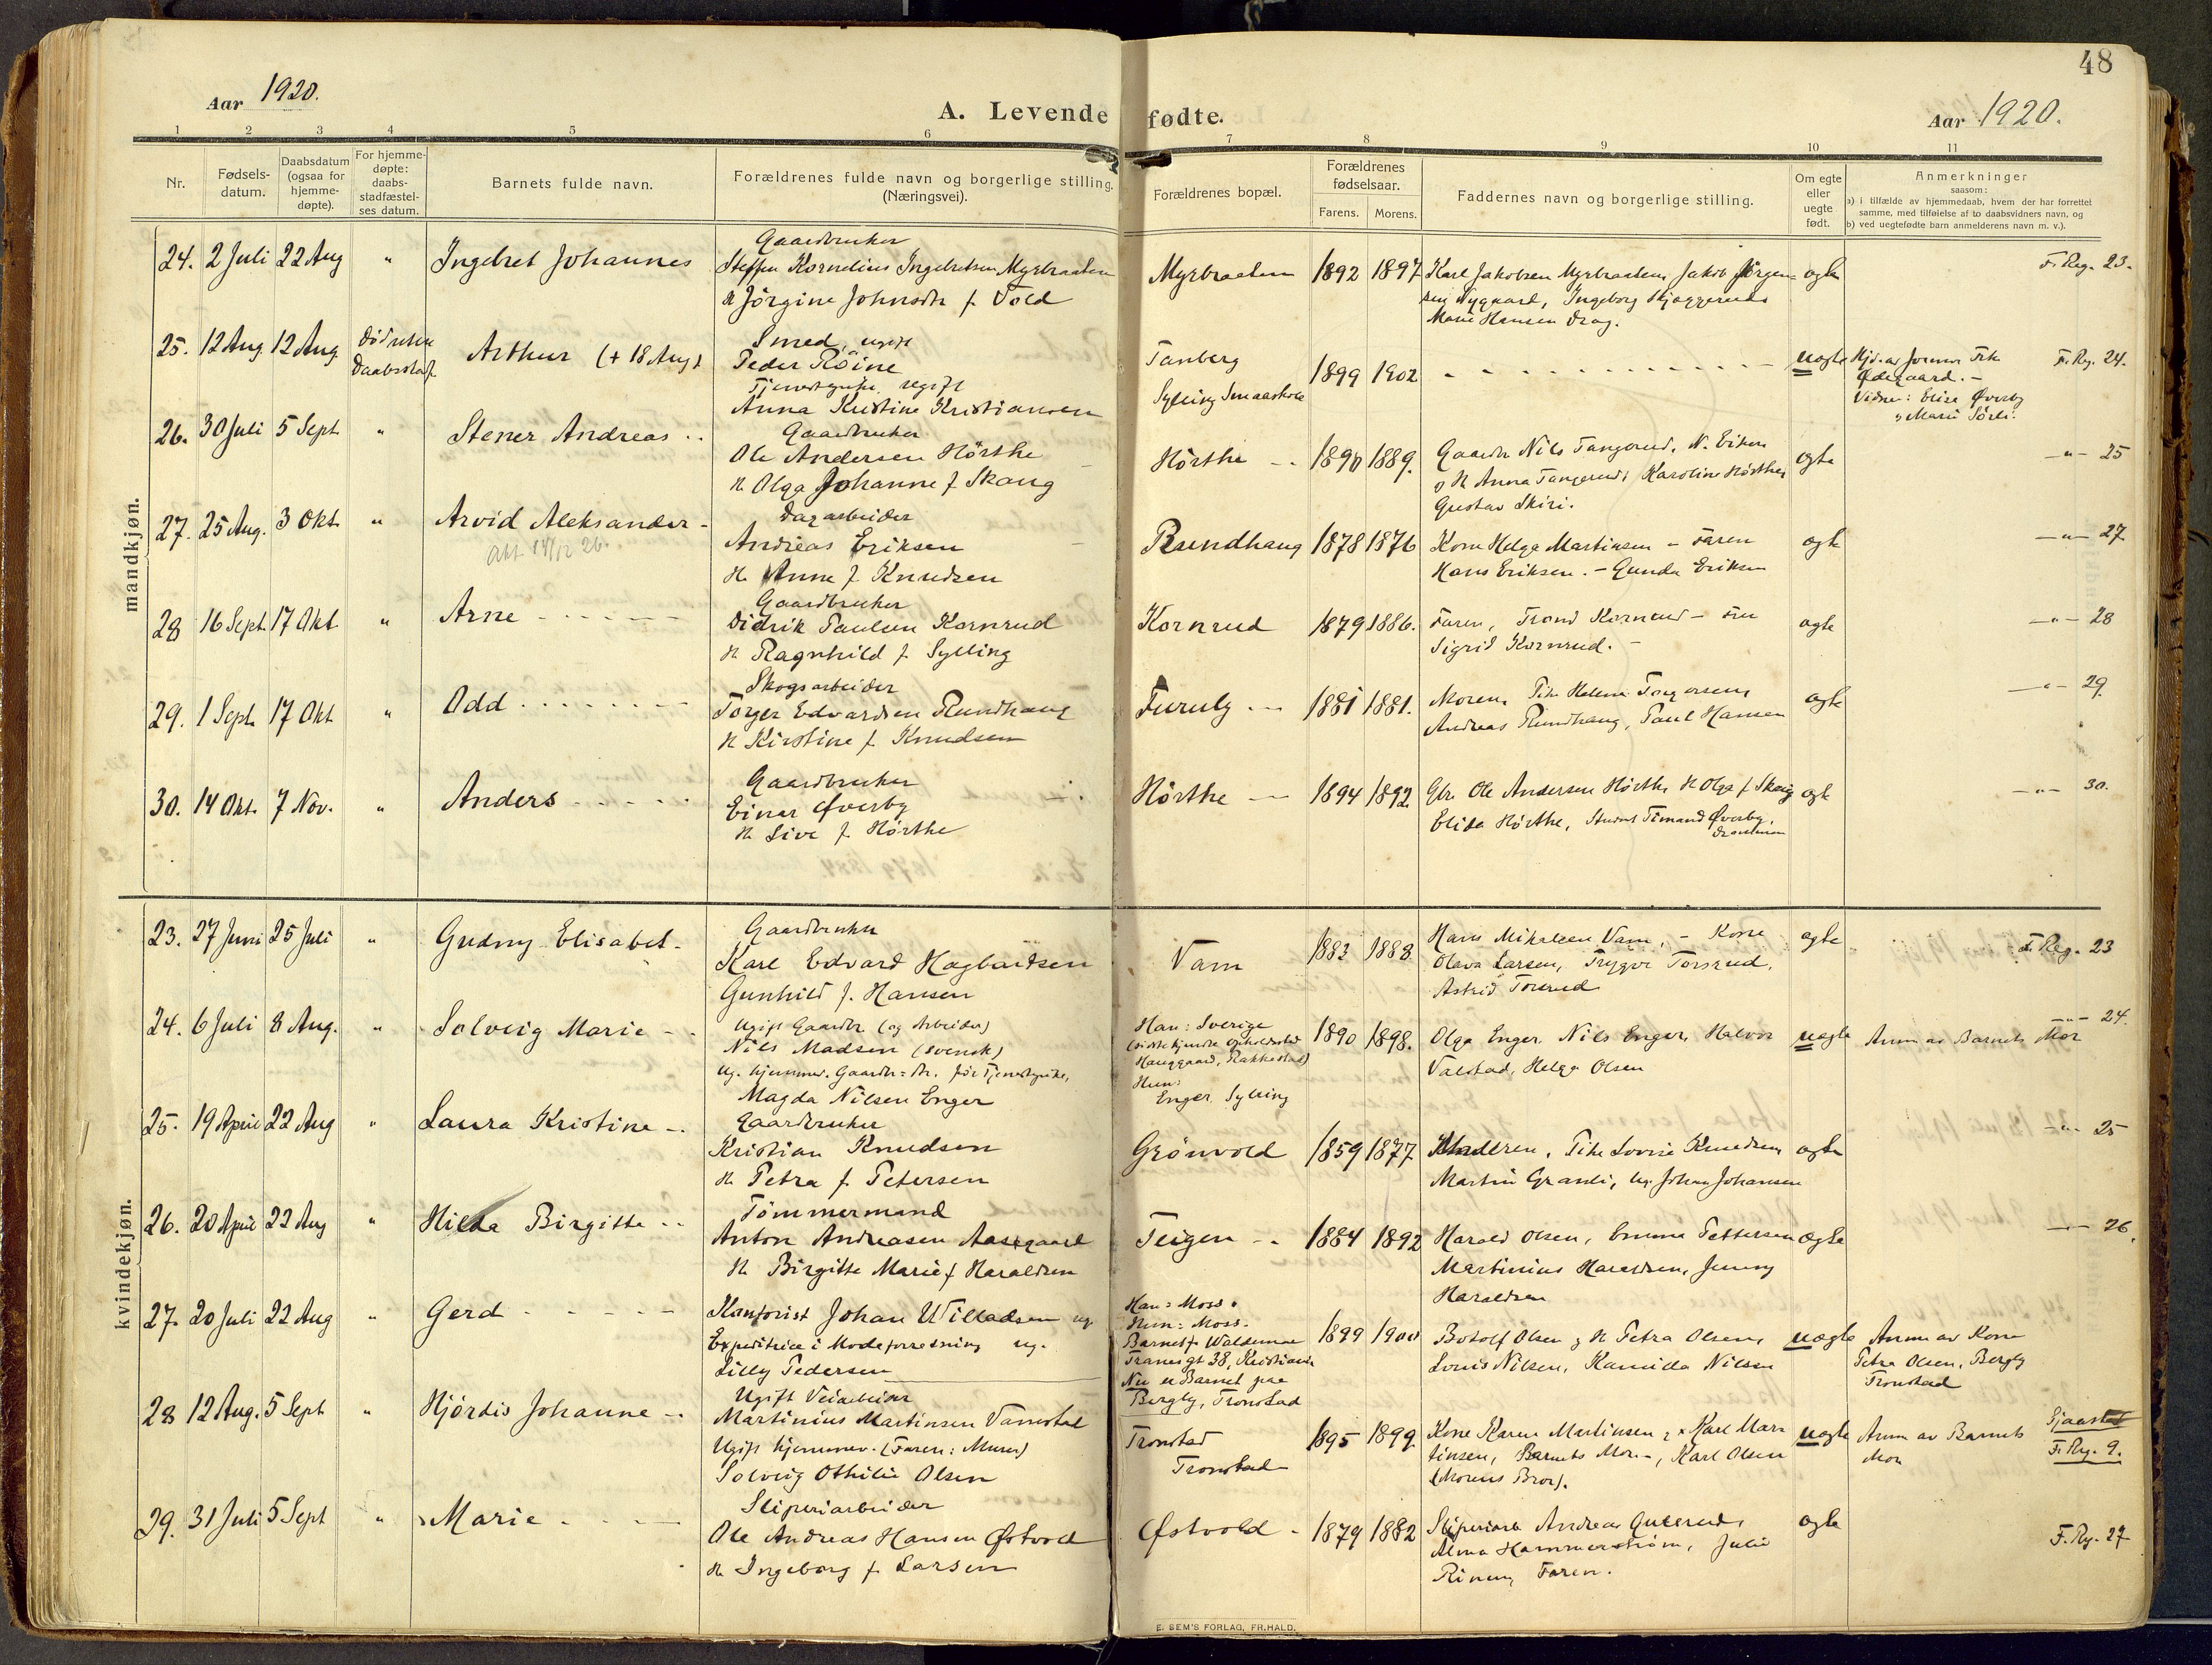 48
Aar 1920.
A. Levende fødte.
Aar 1920.
1 2 3 4 5 6 7 8 9 10 11
Nr.
Fødsels-
datum.
Daabsdatum
(ogsaa for
hjemme-
døpte).
For hjemme-
døpte:
daabs-
stadfæstel-
ses datum.
Barnets fulde navn.
Forældrenes fulde navn og borgerlige stilling.
(Næringsvei).
Forældrenes bopæl.
Forældrenes
fødselsaar.
Farens. Morens.
Faddernes navn og borgerlige stilling.
Om egte
eller
uegte
født.
Anmerkninger
saasom:
a) i tilfælde av hjemmedaab, hvem der har forrettet
samme, med tilføielse af to daabsvidners navn, og
b) ved uegtefødte barn anmelderens navn m. v.).
mandkjøn.
24. 2 Juli 22 Aug " Ingebret Johannes
Gaardbruker
Steffen Kornelius Ingebretsen Myrbraaten
H. Jörgine Johnsdtr f. Vold
Myrbraaten 1892 1897
Karl Jakobsen Myrbraaten, Jakob Jörgen-
sen Nygaard, Ingeborg Skjæggerud
Marie Hansen Drag.
egte
F. Reg. 23.
25. 12 Aug. 12 Aug Död uten
Daabsstadf.
Arthur (+ 18 Aug)
Smed, ugift
Peder Röine
Tjenestepike, ugift
Anna Kristine Kristiansen
Tanberg
Sylling Smaaskole
1899 1902
uegte
Hjd. av Jormor Frk
Ødegaard. -
Vidner: Elise Øverby
" Marie Sörli.
F. Reg. 24.
26. 30 Juli 5 Sept " Stener Andreas
Gaardbruker
Ole Andersen Hörthe
H. Olga Johanne f. Skaug
Hörthe 1890 1889.
Gaardbr Nils Tangerud, N. Eiker
og H. Anna Tangerud, Karoline Hörthe,
Gustav Skiri.
egte
-"- 25
27. 25 Aug. 3 Okt " Arvid Aleksander
Att 18/12 26.
Dagarbeider
Andreas Eriksen
H. Anne f. Knudsen
Rundhaug 1878 1876
Kone Helga Martinsen - Faren
Hans Eriksen. - Gunda Eriksen
egte
-"- 27
28 16 Sept 17 Okt " Arne
Gaardbruker
Didrik Paulsen Kornrud
H. Ragnhild f. Sylling
Kornrud 1879 1886.
Faren, Trond Kornrud - Fru
Sigrid Kornrud. -
egte
-"- 28
29. 1 Sept. 17 Okt " Odd
Skogsarbeider
Torger Edvardsen Rundhaug
H. Kirstine f. Knudsen
Furuly 1881 1881.
Moren, Pike Helene Torgersen,
Andreas Rundhaug, Paul Hansen
egte
-"- 29.
30. 14 Okt. 7 Nov. " Anders
Gaardbruker
Einar Øverby
H. Live f. Hörthe
Hörthe 1894 1892
Gbr. Ole Andersen Hörthe H. Olga f. Skaug
Elida Hörthe, Student Timand Øverby,
Drammen
egte
-"- 30.
kvindekjøn.
23. 27 Juni 25 Juli " Gudny Elisabet
Gaardbruker
Karl Edvard Hagbartsen
Gunhild f. Hansen
Vam 1883 1888
Hans Mikalsen Vam, - Kone
Olava Larsen, Trygve Torsrud,
Astrid Torsrud
egte
F. Reg. 23
24. 6 Juli 8 Aug. " Solveig Marie
Ugift Gaardbr (og Arbeider)
Nils Madsen (svensk)
Ug. hjemmev. Gaardbr. dtr. før Tjenestepike,
Magda Nilsen Enger
Han: Sverige
(sidste kjendte Opholdssted
Hauggaard, Rakkestad)
Hun:
Enger, Sylling
1890 1898.
Olga Enger, Nils Enger, Halvor
Valstad, Helga Olsen
uegte
Anm av Barnets Mor
-"- 24.
25. 19 April 22 Aug " Laura Kristine
Gaardbruker
Kristian Knudsen
H. Petra f. Petersen
Grönvold 1859 1877
Forældren, Pike Lovise Knudsen,
Martin Granli, Ug. Johan Johansen
egte
-"- 25
26. 20 April 22 Aug " Hilda Birgitte
Tömmermand
Anton Andreasen Aasgaard
H. Birgitte Marie f. Haraldsen
Teigen 1884 1892
Harald Olsen, Emma Pettersen
Martinius Haraldsen, Jenny
Haraldsen
egte
-"- 26.
27. 20 Juli 22 Aug " Gerd
Kontorist Johan Willadsen ug.
Expeditrice i Modeforretning ug.
Lilly Pedersen
Han: Moss.
Hun: Moss.
Barnet f. Waldemar
Tranes gt 38, Kristiania
Nu er Barnet paa
Bergby, Tronstad
1899 1900
Botolf Olsen og H. Petra Olsen,
Louis Nilsen, Kamilla Nilsen
uegte
Anm av Kone
Petra Olsen, Bergby
Tronstad
28 12 Aug. 5 Sept " Hjördis Johanne
Ugift Veiarbeider
Martinius Martinsen Vamstad
Ugift hjemmev. (Faren: Murer)
Solveig Othilie Olsen
Tronstad
Tronstad
1895 1899.
Kone Karen Martinsen, Karl Mar-
tinsen, Barnets Mor -, Karl Olsen
(Morens Bror).
uegte
Anm av Barnets
Mor
F. Reg. 9.
29. 31 Juli 5 Sept " Marie
Sliperiarbeider
Ole Andreas Hansen Østvold
H. Ingeborg f. Larsen
Østvold 1879 1882
Sliperiarb Andreas Gullerud,
Alma Hammerström, Julie
Rineng Faren.
egte
F. Reg. 27
E. SEM'S FORLAG, FR.HALD.